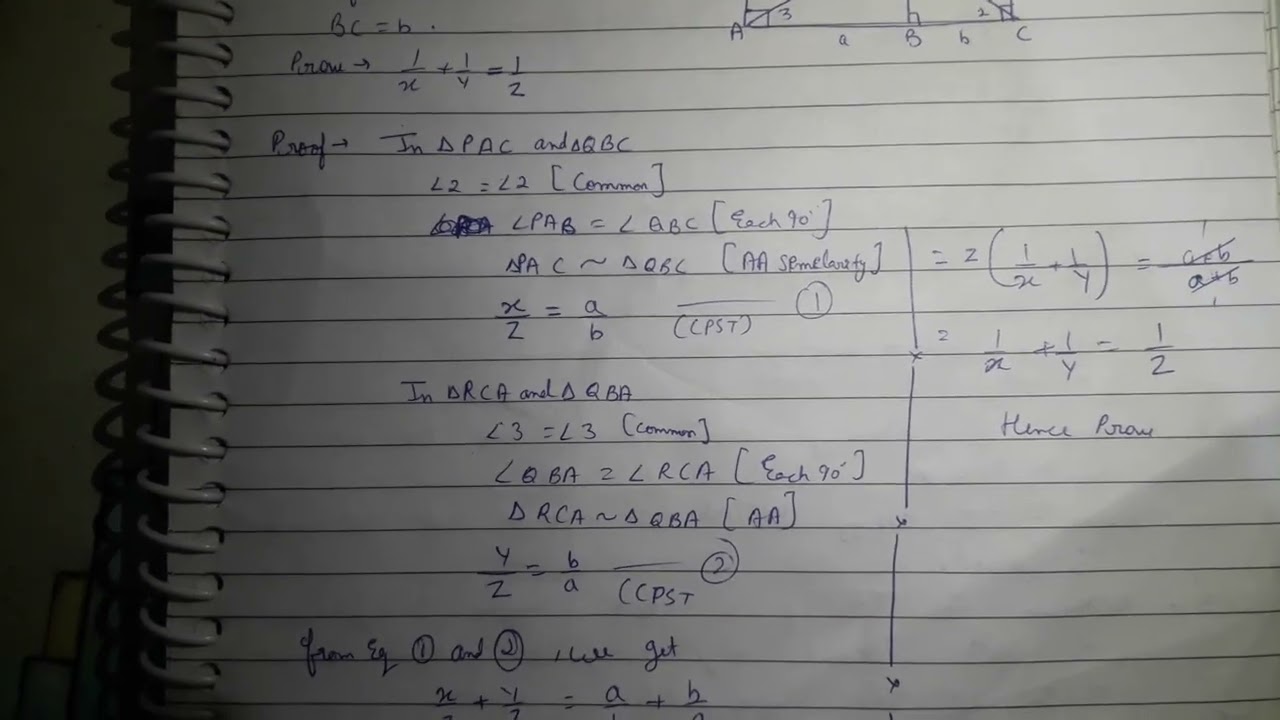 BC = b .
A 3 a B b 2 C
Prove → 1/x + 1/y = 1/z
Proof → In ΔPAC and ΔQBC
∠2 = ∠2 [Common]
∠PAB = ∠QBC [Each 90°]
ΔPAC ~ ΔQBC [AA Semelarity]
x/z = a/b (CPST) ①
In ΔRCA and Δ QBA
∠3 = ∠3 (Common]
∠QBA = ∠RCA [Each 90°]
Δ RCA ~ ΔQBA [AA]
y/z = b/a (CPST ②
from Eq ① and ② , we get
x/z + y/z = a/b + b/a
= z (1/x + 1/y) = a+b/a+b
= 1/x + 1/y = 1/z
Hence Prove